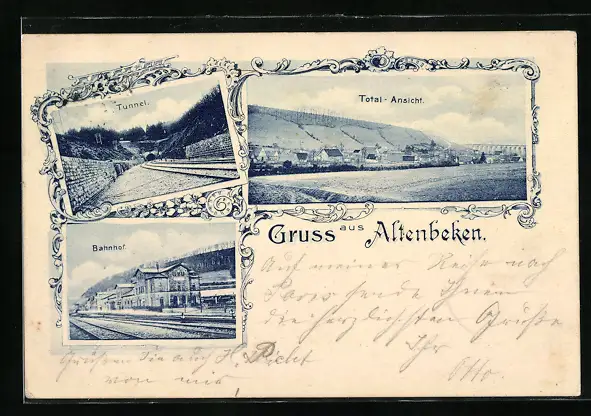 Tunnel.
Total-Ansicht.
Bahnhof.
Gruss aus Altenbeken.
Auf meiner Reise nach
Paris sende Ihnen
die herzlichsten Grüße
Ihr
Otto.
Grüßen Sie auch H. Picht
von mir